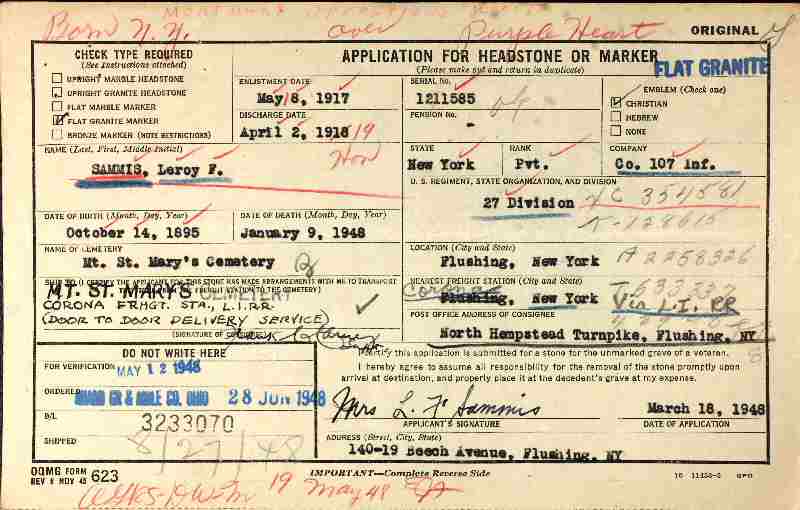 Born N.Y. over Purple Heart ORIGINAL
CHECK TYPE REQUIRED
(See Instructions attached)
UPRIGHT MARBLE HEADSTONE
UPRIGHT GRANITE HEADSTONE
FLAT MARBLE MARKER
FLAT GRANITE MARKER
BRONZE MARKER (NOTE RESTRICTIONS)
APPLICATION FOR HEADSTONE OR MARKER
(Please make out and return in duplicate)
FLAT GRANITE
ENLISTMENT DATE
May 8, 1917
DISCHARGE DATE
April 2, 1918 19
Hon
SERIAL No.
1211585
PENSION No.
EMBLEM (Check one)
CHRISTIAN
HEBREW
NONE
NAME (Last, First, Middle Initial)
SAMMIS, Leroy F.
STATE
New York
RANK
Pvt.
COMPANY
Co. 107 Inf.
U. S. REGIMENT, STATE ORGANIZATION, AND DIVISION
27 Division
XC 354581
K-128615
DATE OF BIRTH (Month, Day, Year)
October 14, 1895
DATE OF DEATH (Month, Day, Year)
January 9, 1948
NAME OF CEMETERY
Mt. St. Mary's Cemetery
LOCATION (City and State)
Flushing, New York
A 2258326
SHIP TO (I CERTIFY THE APPLICANT FOR THIS STONE HAS MADE ARRANGEMENTS WITH ME TO TRANSPORT
FREIGHT STATION TO THE CEMETERY)
MT. ST. MARY'S CEMETERY
CORONA FRHGT. STA., L.I.R.R
(DOOR TO DOOR DELIVERY SERVICE)
(SIGNATURE OF
NEAREST FREIGHT STATION (City and State)
Corona
Flushing, New York Via L.I. RR
POST OFFICE ADDRESS OF CONSIGNEE
North Hempstead Turnpike, Flushing, NY
DO NOT WRITE HERE
FOR VERIFICATION MAY 12 1948
ORDERED
CO. OHIO 28 JUN 1948
B/L
3233070
SHIPPED
8/27/48
I certify this application is submitted for a stone for the unmarked grave of a veteran.
I hereby agree to assume all responsibility for the removal of the stone promptly upon
arrival at destination, and properly place it at the decedent's grave at my expense.
Mrs L. F. Sammis
APPLICANT'S SIGNATURE
March 18, 1948
DATE OF APPLICATION
ADDRESS (Street, City, State)
140-19 Beech Avenue, Flushing, NY
OQMG FORM
REV 8 NOV 45 623
IMPORTANT—Complete Reverse Side
GPO
19 May 48